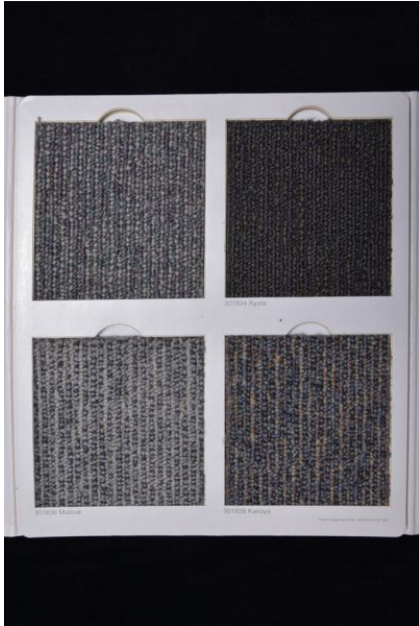 301834 Kyoto
301836 Matsue
301828 Kanoya